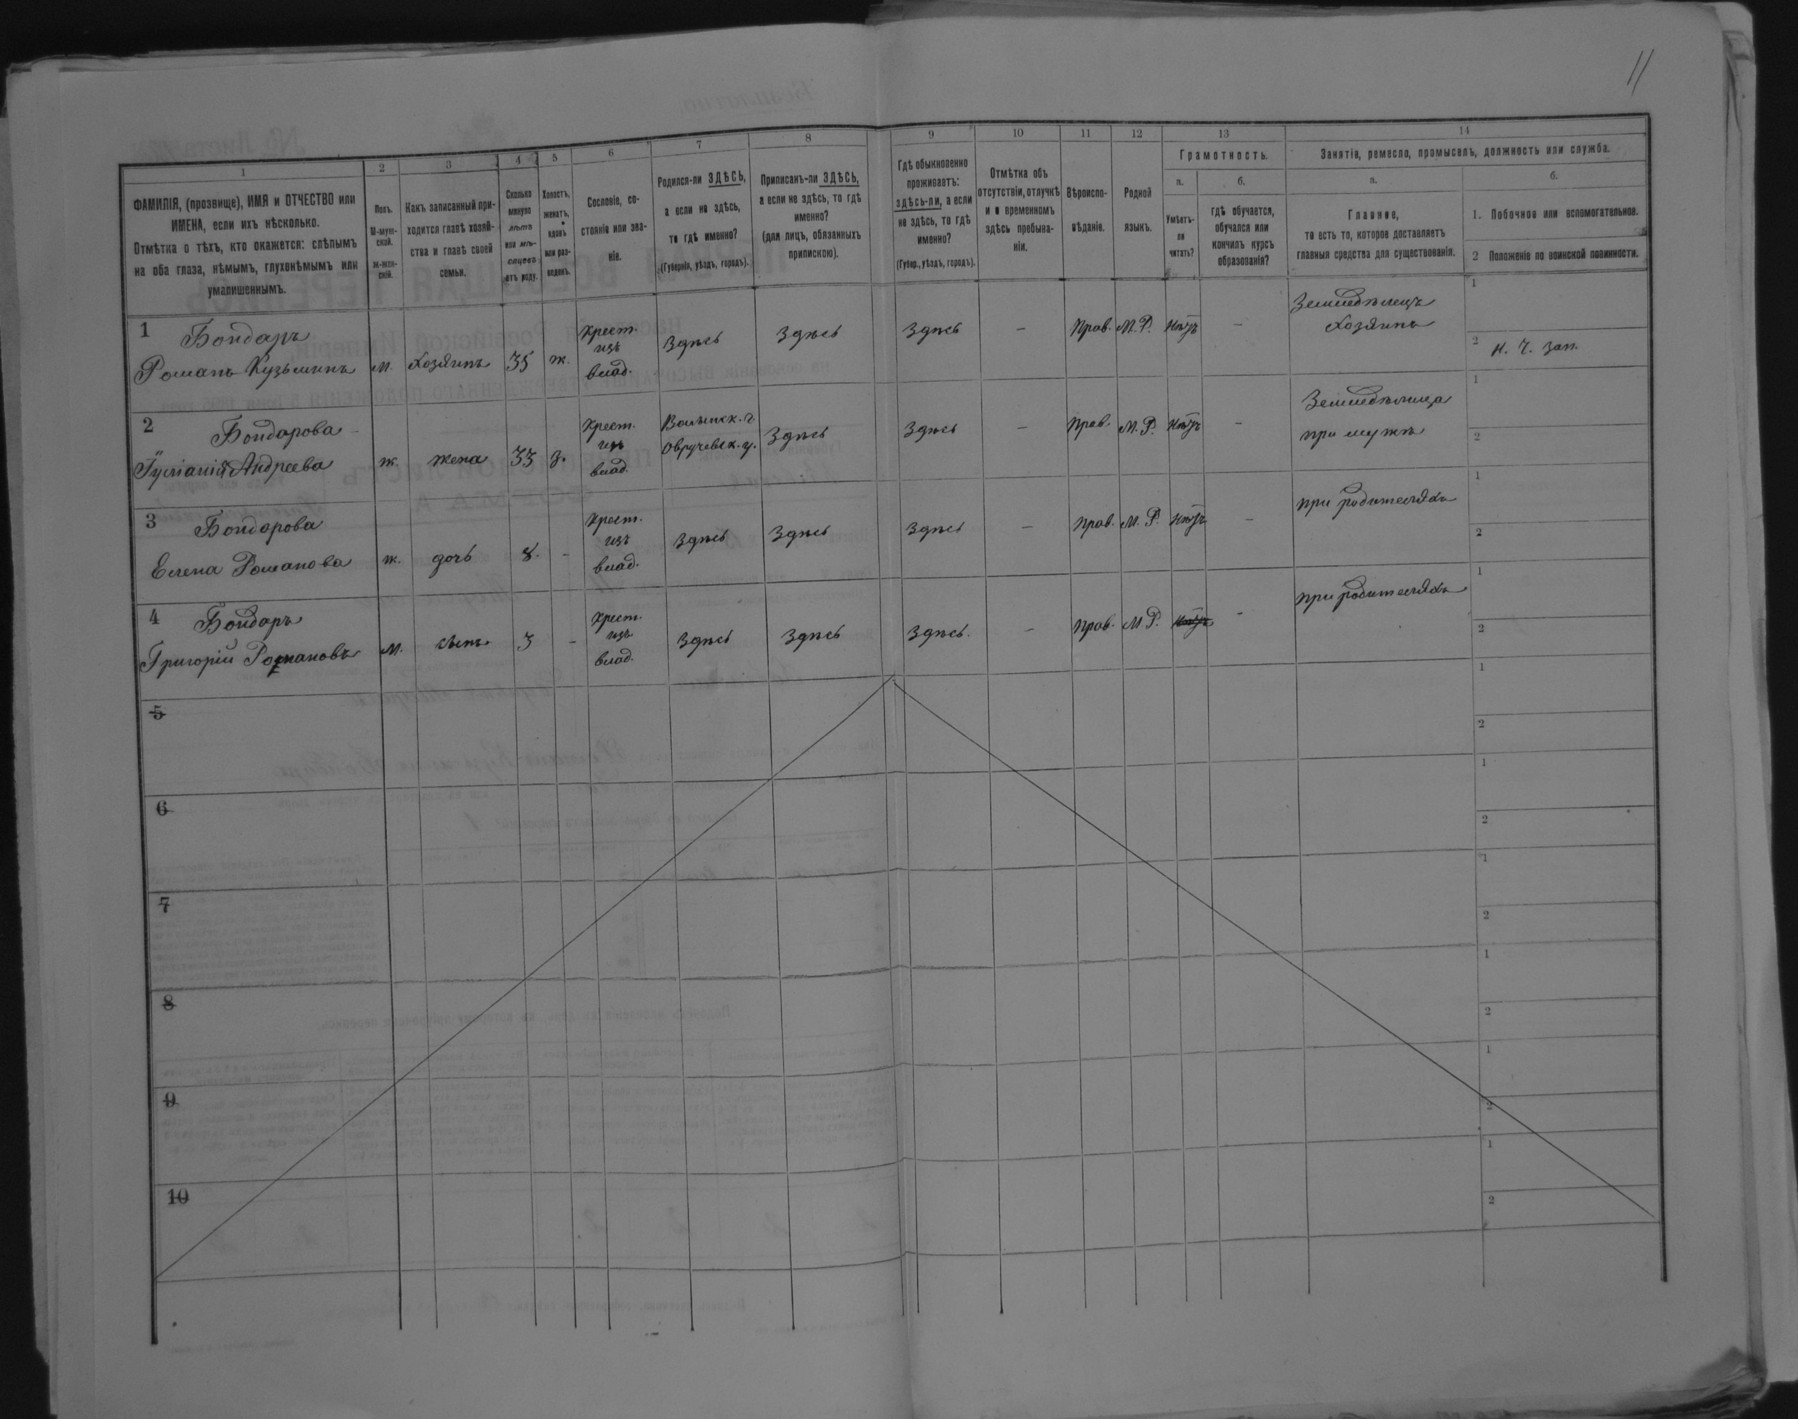 11
1
2
3
4
5
6
7
8
9
10
11
12
13
14
ФАМИЛІЯ, (прозвище), ИМЯ и ОТЧЕСТВО или
ИМЕНА, если ихъ нѣсколько.
Отмѣтка о тѣхъ, кто окажется: слѣпымъ
на оба глаза, нѣмымъ, глухонѣмымъ или
умалишеннымъ.
Полъ.
М-муж-
ской.
Ж-жен-
скій.
Какъ записанный при-
ходится главѣ хозяй-
ства и главѣ своей
семьи.
Сколько
минуло
лѣтъ
или мѣ-
сяцевъ
отъ роду.
Холостъ,
женатъ,
вдовъ
или раз-
веденъ.
Сословіе, со-
стояніе или зва-
ніе.
Родился-ли ЗДѢСЬ,
а если не здѣсь,
то гдѣ именно?
(Губернія, уѣздъ, городъ).
Приписанъ-ли ЗДѢСЬ,
а если не здѣсь, то гдѣ
именно?
(для лицъ, обязанныхъ
припискою).
Гдѣ обыкновенно
проживаетъ:
здѣсь-ли, а если
не здѣсь, то гдѣ
именно?
(Губер., уѣздъ, городъ).
Отмѣтка объ
отсутствіи, отлучкѣ
и о временномъ
здѣсь пребыва-
ніи.
Вѣроиспо-
вѣданіе.
Родной
языкъ.
Грамотность.
а.
б.
Умѣетъ-
ли
читать?
гдѣ обучается,
обучался или
кончилъ курсъ
образованія?
Занятіе, ремесло, промыселъ, должность или служба.
а.
б.
Главное,
то есть то, которое доставляетъ
главныя средства для существованія.
1. Побочное или вспомогательное.
2 Положеніе по воинской повинности.
1 Бондаръ
Романъ Кузьминъ м. Хозяинъ 35 ж. Крест. изъ влад. Здѣсь Здѣсь Здѣсь – Прав. М.Р. Нѣтъ – Земледѣлецъ Хозяинъ
1
2 н. ч. зап.
2 Бондарова
Андреева ж. жена 33 з. Крест. изъ влад. Волынск. г. Овручевск. у. Здѣсь Здѣсь – Прав. М.Р. Нѣтъ – Земледѣлица при мужѣ
1
2
3 Бондарова
Елена Романова ж. дочь 8. – Крест. изъ влад. Здѣсь Здѣсь Здѣсь – Прав. М.Р. Нѣтъ – при родителяхъ
1
2
4 Бондаръ
Григорій Романовъ м. сынъ 3 – Крест. изъ влад. Здѣсь Здѣсь Здѣсь. – Прав. М.Р. Нѣтъ – при родителяхъ
1
2
5
1
2
6
1
2
7
1
2
8
1
2
9
1
2
10
1
2